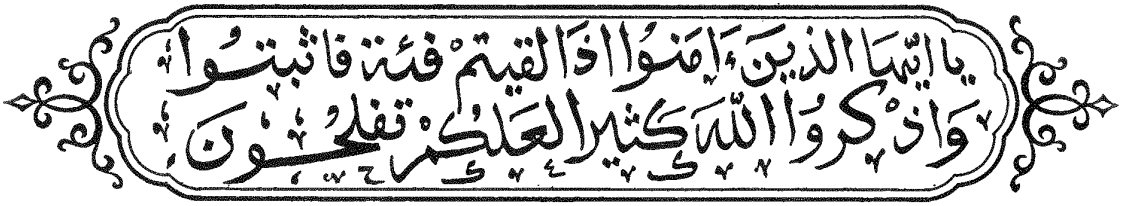 يا ايّهَا الذينَ ءَامَنُوا اذَا لقيتمْ فئة فاثبتُوا
وَاذْكرُوا اللّهَ كَثيرا لعَلكُمْ تفلحُونَ